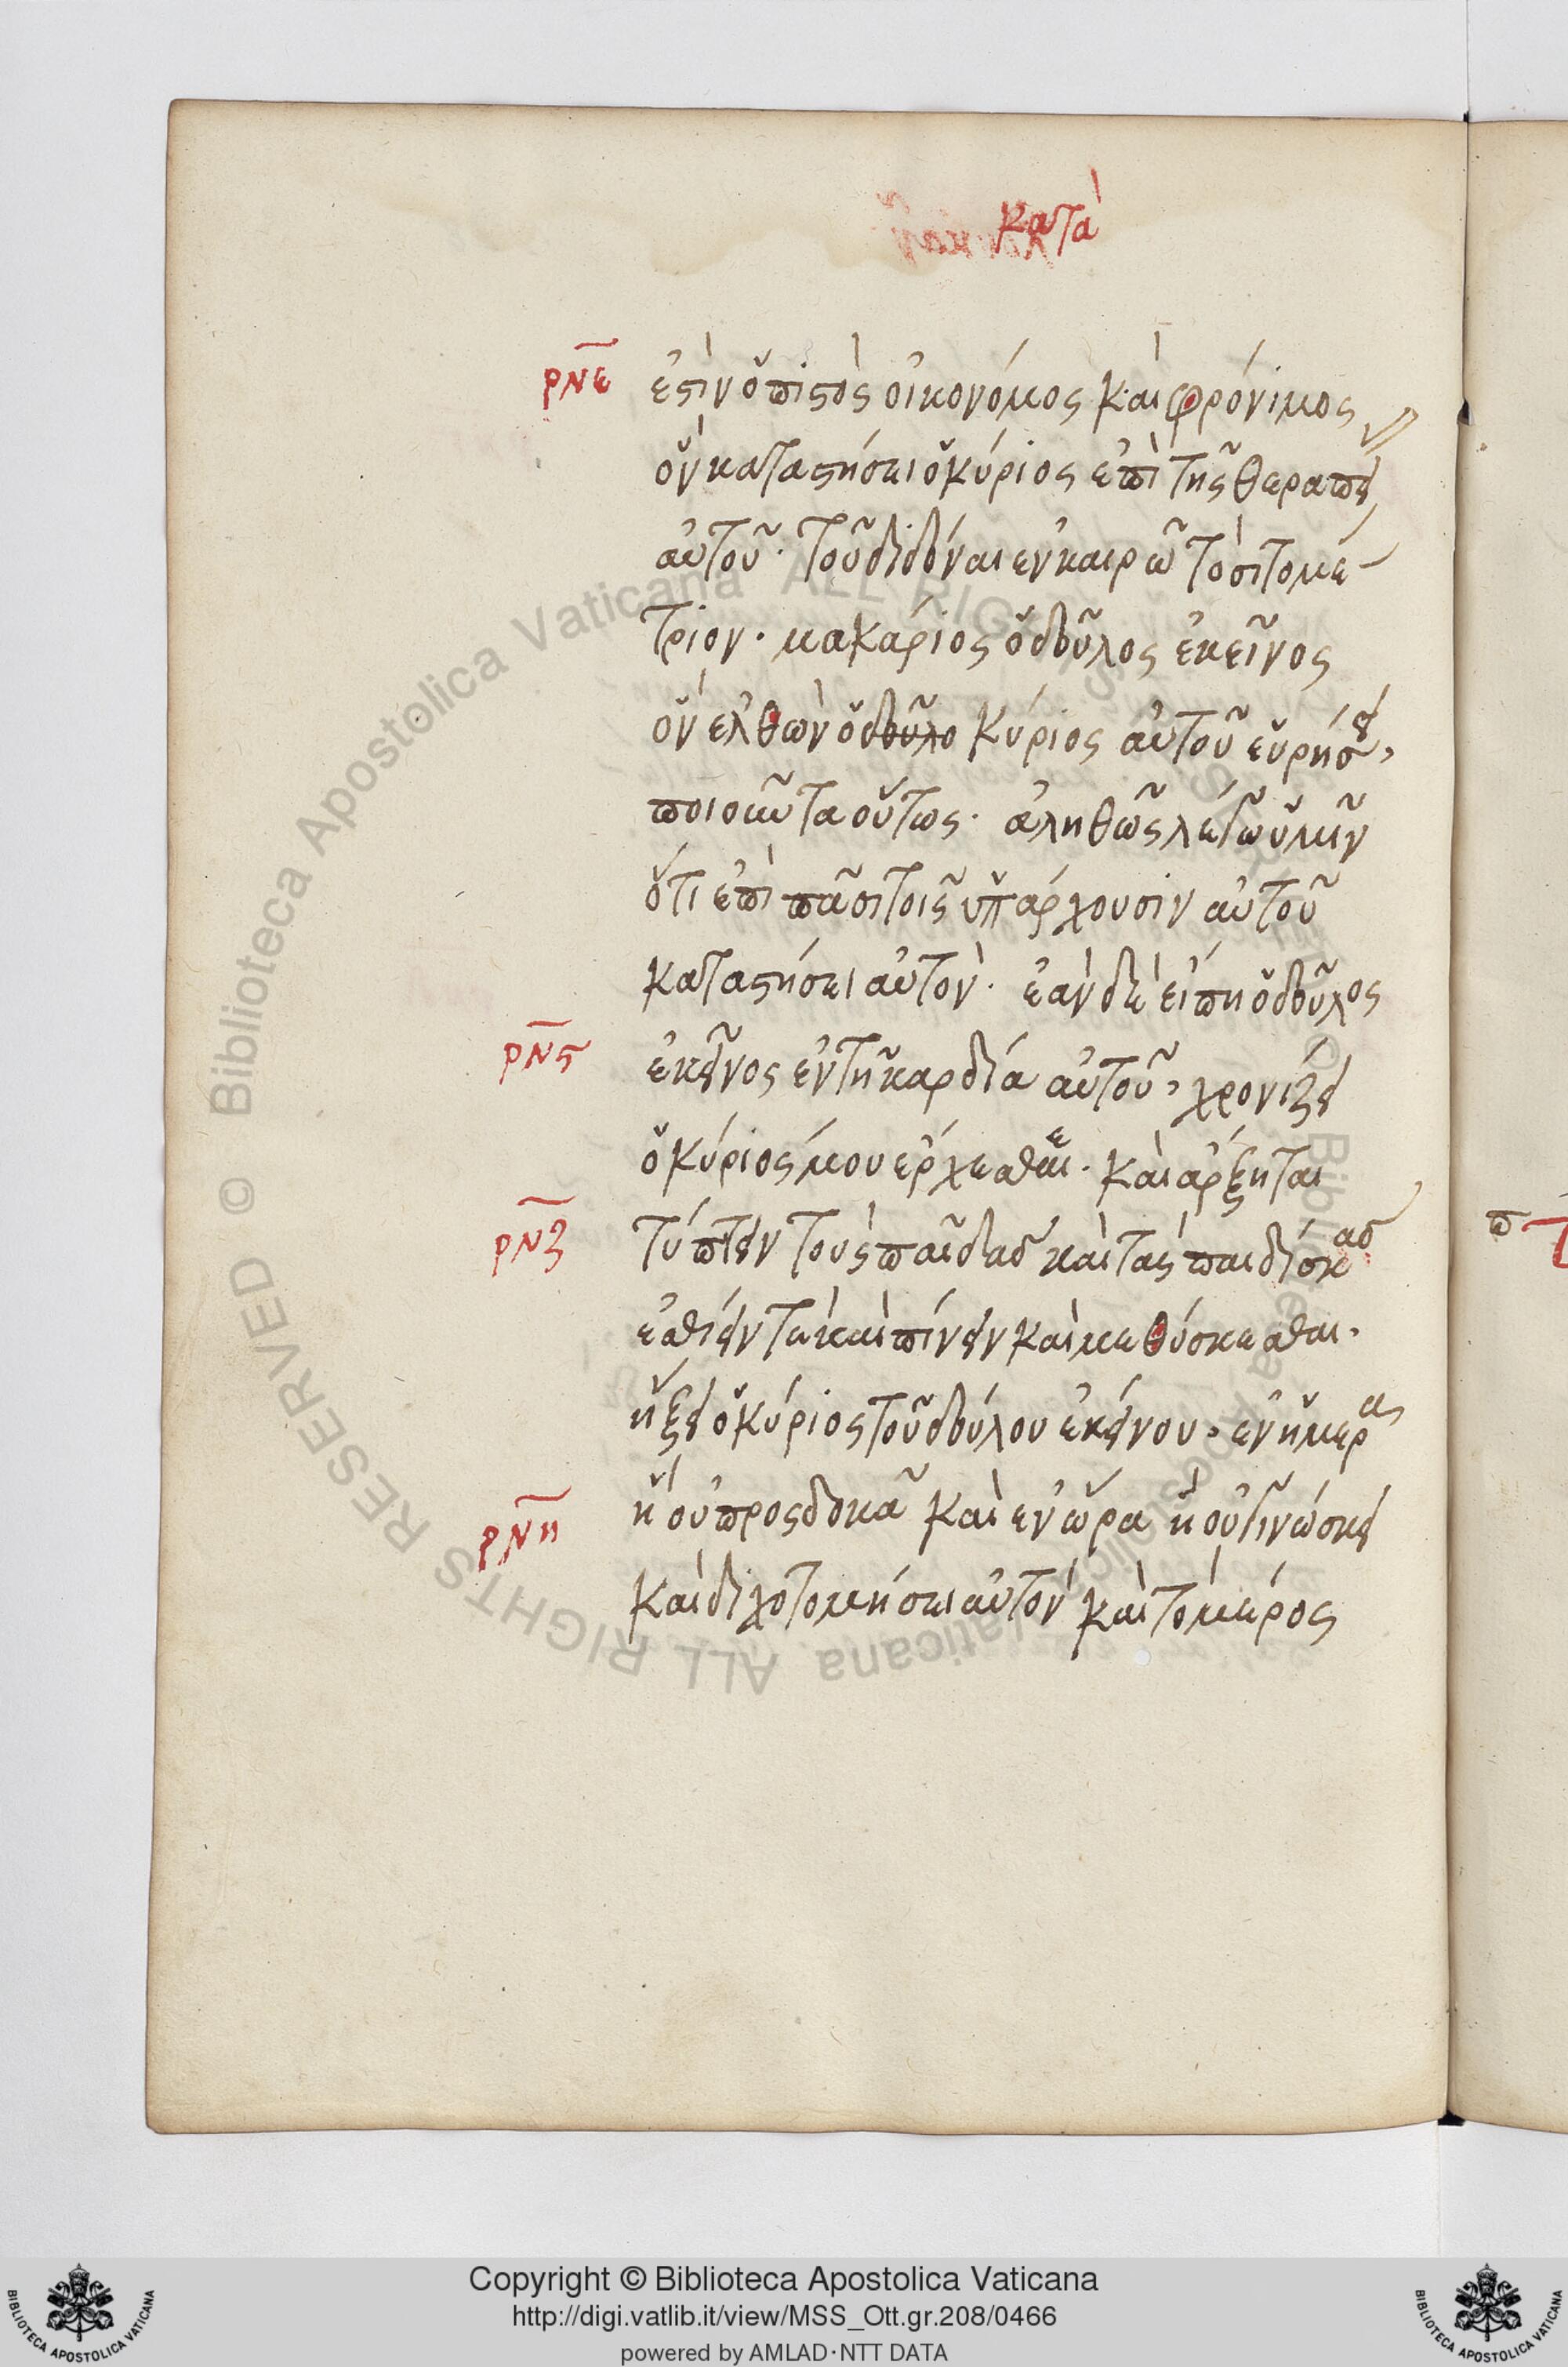 κατὰ
ρνε ἐστὶν ὁ πιστὸς οἰκονόμος καὶ φρόνιμος
ὃν καταστήσει ὁ κύριος ἐπὶ τῆς θεραπεί
αὐτοῦ· τοῦ διδόναι ἐν καιρῶ τὸ σιτομέ-
τριον· μακάριος ὁ δοῦλος ἐκεῖνος
ὃν ἐλθὼν ὁ δοῦλο κύριος αὐτοῦ εὑρήσει,
ποιοῦντα οὕτως· ἀληθῶς λέγω ὑμῖν
ὅτι ἐπὶ πᾶσι τοῖς ὑπάρχουσιν αὐτοῦ
καταστήσει αὐτόν· ἐὰν δὲ εἴπη ὁ δοῦλος
ρνς ἐκεῖνος ἐν τῆ καρδία αὐτοῦ, χρονίζει
ὁ κύριός μου ἔρχεσθαι· καὶ ἄρξηται
ρνζ τύπτειν τοὺς παῖδας καὶ τὰς παιδίσκας
ἐσθίειν τε καὶ πίνειν καὶ μεθύσκεσθαι·
ἥξει ὁ κύριος τοῦ δούλου ἐκείνου, ἐν ἡμέρα
ρνη ἧ οὐ προσδοκᾶ καὶ ἐν ὥρα ἧ οὐ γινώσκει
καὶ διχοτομήσει αὐτὸν καὶ τὸ μέρος
π
© Biblioteca Apostolica Vaticana ALL RIGHTS RESERVED
Copyright © Biblioteca Apostolica Vaticana
http://digi.vatlib.it/view/MSS_Ott.gr.208/0466
powered by AMLAD·NTT DATA
BIBLIOTECA APOSTOLICA VATICANA
BIBLIOTECA APOSTOLICA VATICANA